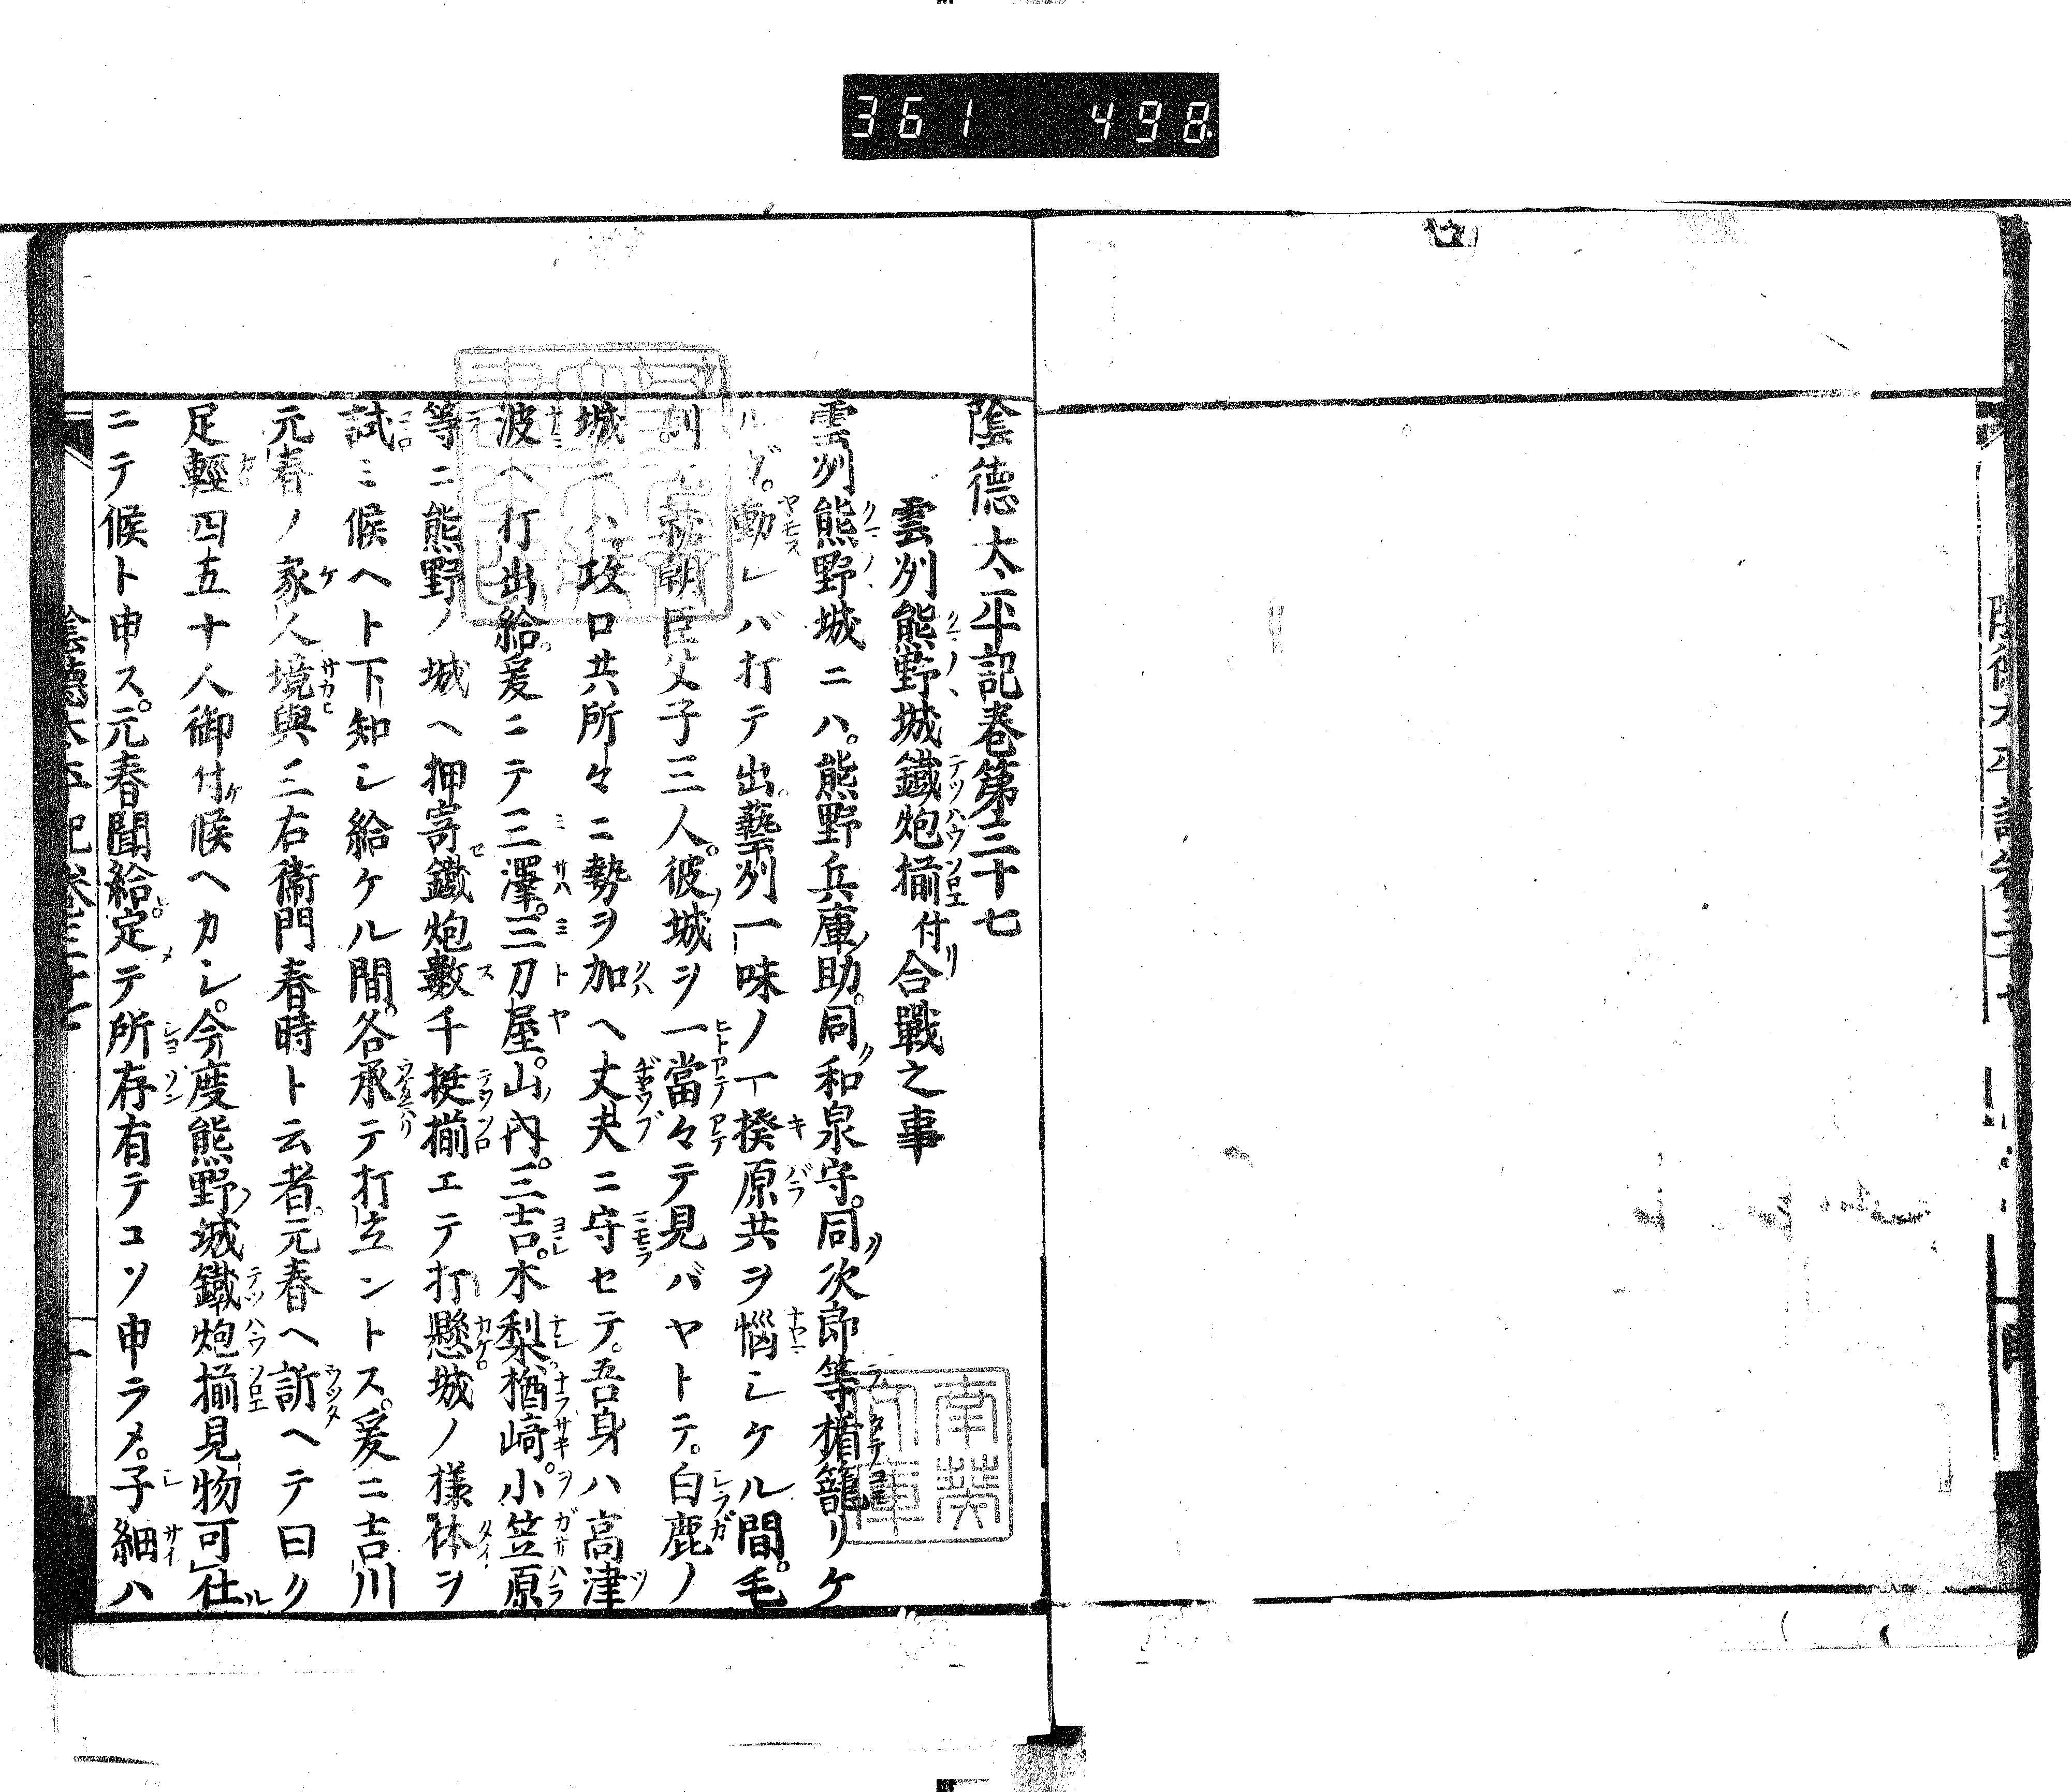 361 498
陰德太平記巻第三十七
雲州熊野城鐵炮揃付合戰之事
雲州熊野城ニハ。熊野兵庫助。同和泉守。同次郎等楯籠リケ
ルガ。動レバ打テ出。藝州一味ノ一揆原共ヲ惱シケル間。毛
利朝臣父子三人。彼城ヲ一當々テ見バヤトテ。白鹿ノ
城ニハ。攻口共所々ニ勢ヲ加ヘ丈夫ニ守セテ。吾身ハ高津
波ヘ打出給。爰ニテ三澤。三刀屋。山内。三吉。木梨。楢﨑。小笠原
等ニ熊野ノ城ヘ押寄鐵炮數千挺揃エテ打懸城ノ様体ヲ
試ミ候ヘト下知シ給ケル間。各承テ打立ントス。爰ニ吉川
元春ノ家人境與三右衛門春時ト云者。元春ヘ訴ヘテ曰ク
足輕四五十人御付候ヘカシ。今度熊野城鐵炮揃見物可仕
ニテ候ト申ス。元春聞給定テ所存有テコソ申ラメ。子細ハ
陰德太平記巻三十七 一
南葵文庫